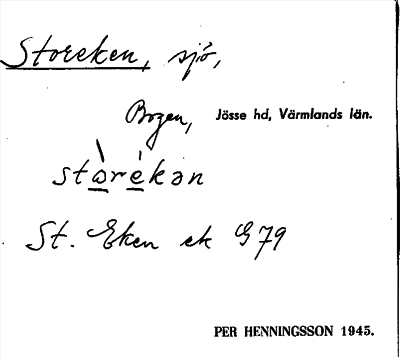 Storeken, sjö,
Bogen, Jösse hd, Värmlands län.
stɷ̀rékən
St. Eken ek G79
PER HENNINGSSON 1945.